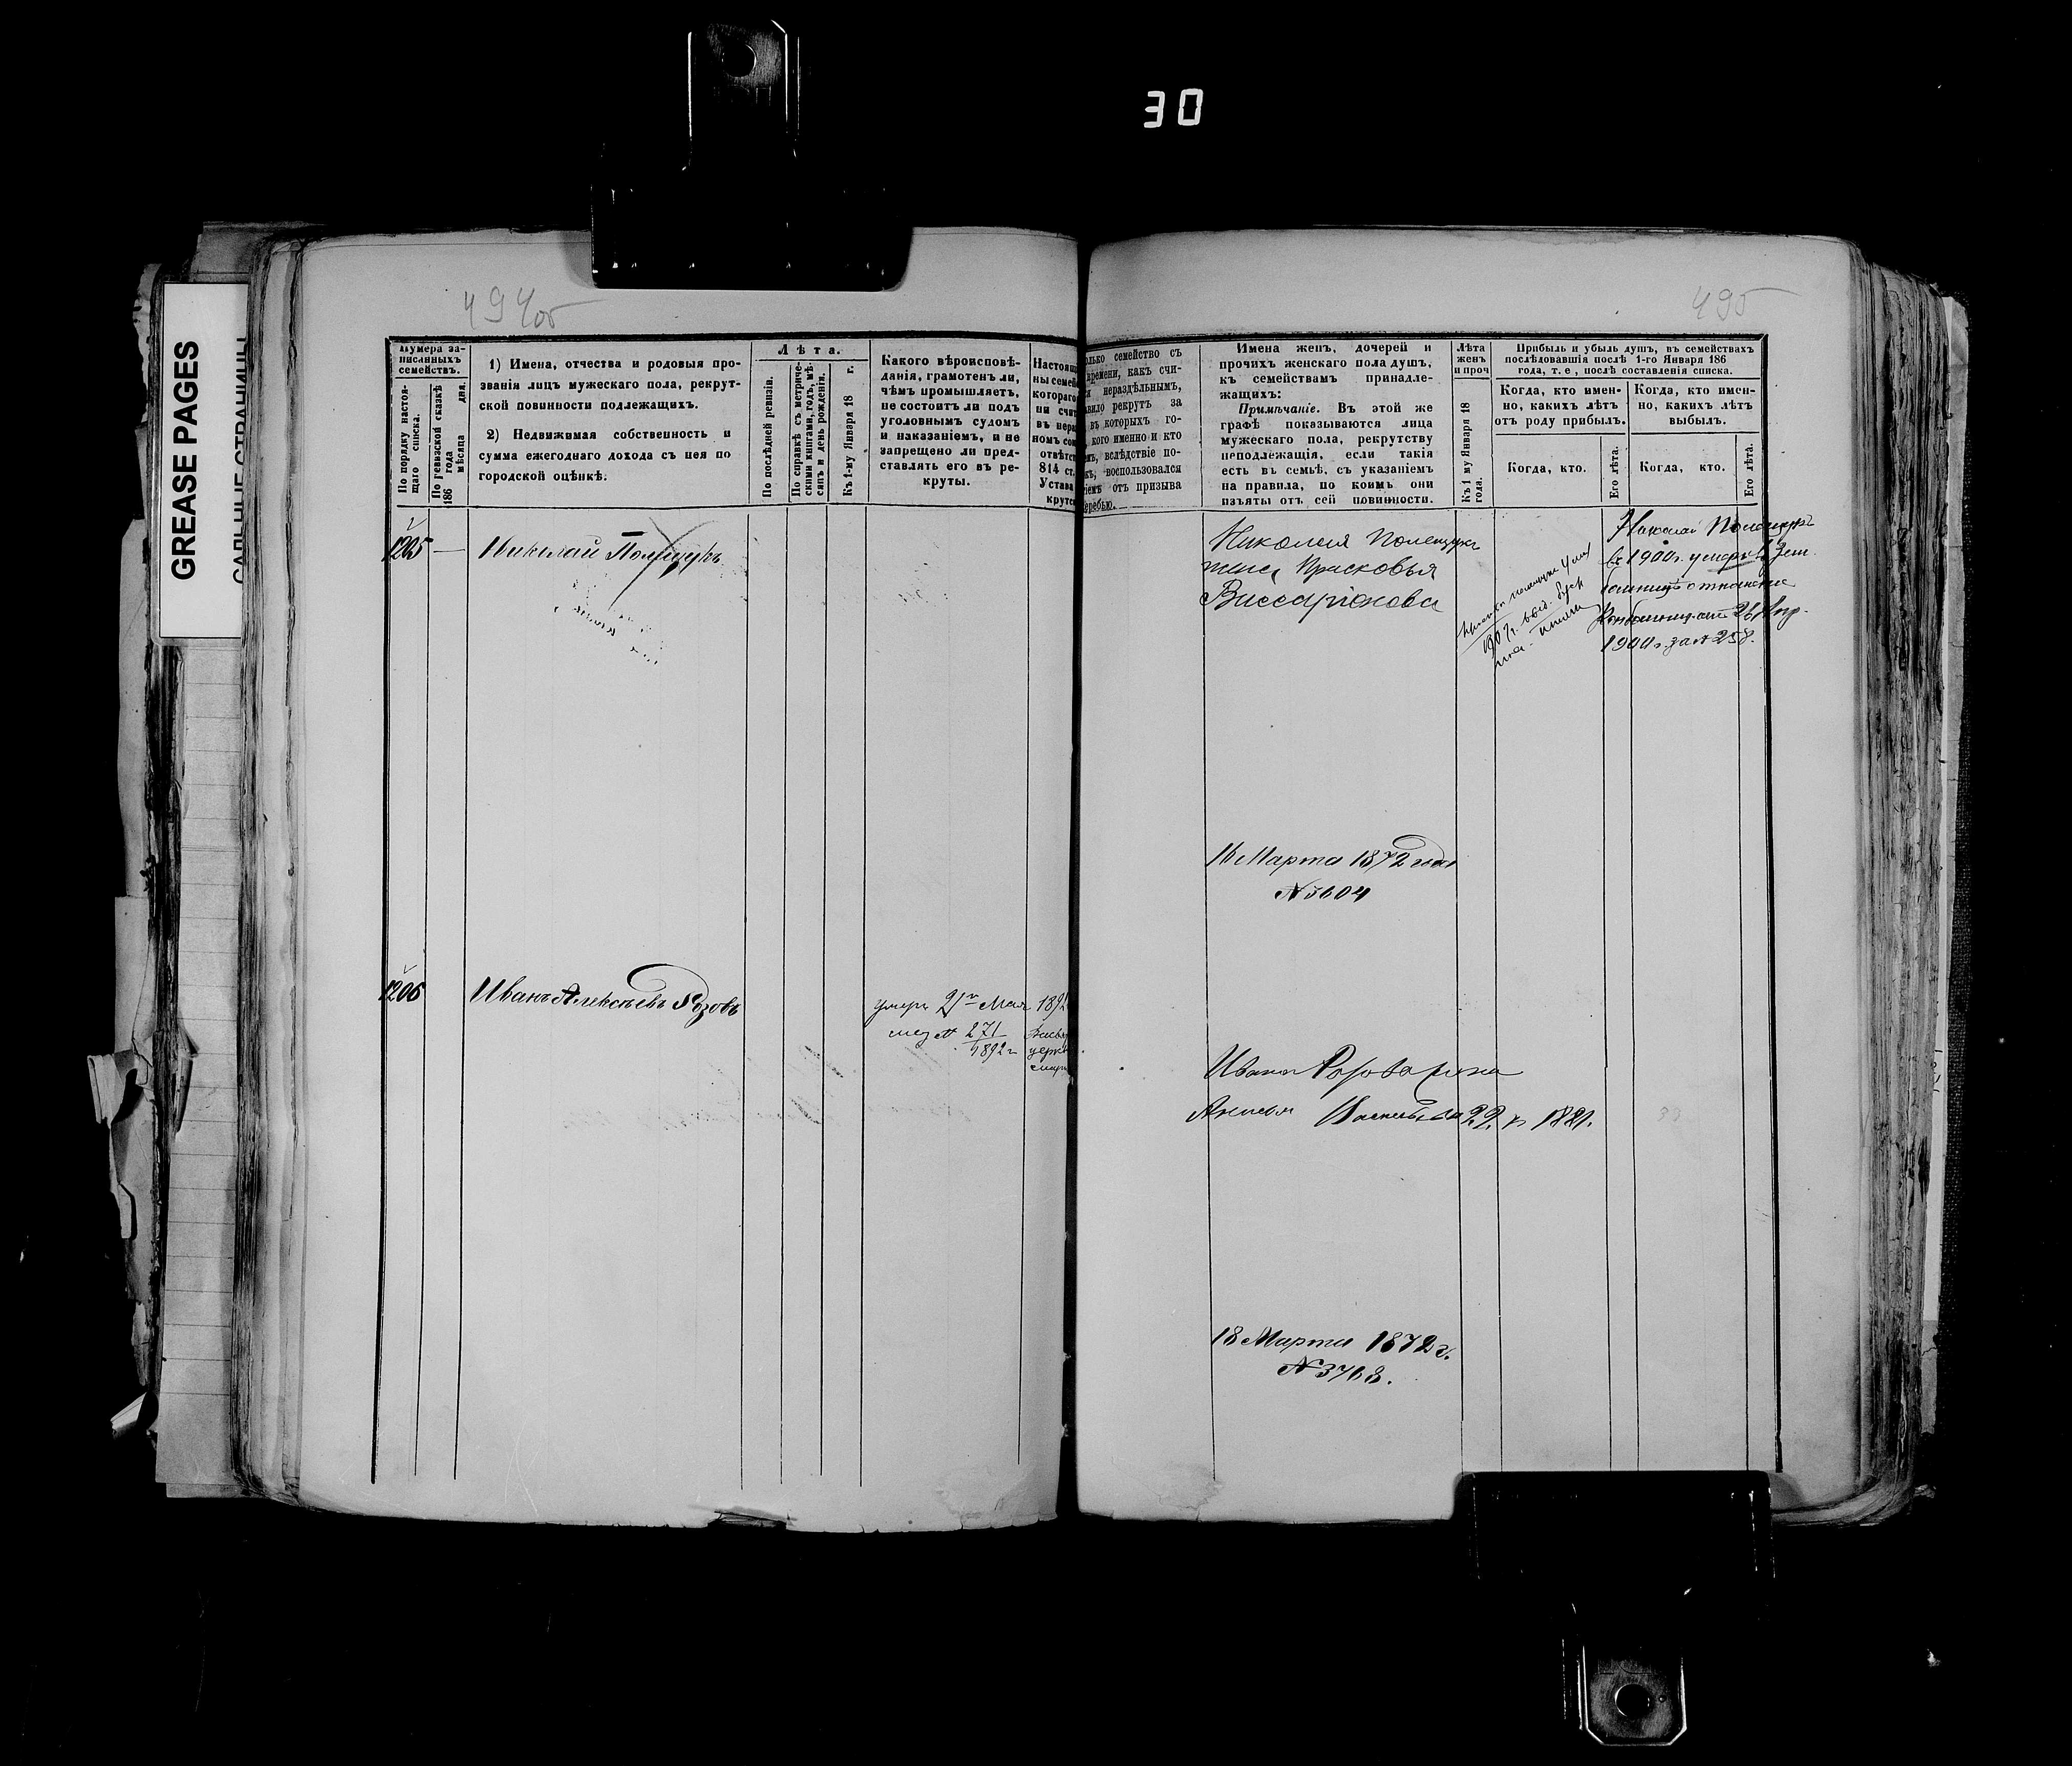 30
GREASE PAGES
САЛЬНЫЕ СТРАНИЦЫ
494об
495
Нумера за-
писанныхъ
семействъ.
По порядку настоя-
щаго списка.
По ревизской сказкѣ
186 года
мѣсяца дня.
1) Имена, отчества и родовыя про-
званія лицъ мужескаго пола, рекрут-
ской повинности подлежащихъ.
2) Недвижимая собственность и
сумма ежегоднаго дохода съ нея по
городской оцѣнкѣ.
Лѣта.
По послѣдней ревизіи.
По справкѣ съ метриче-
скими книгами, годъ, мѣ-
сяцъ и день рожденія.
Къ 1-му Января 18 г.
Какого вѣроисповѣ-
данія, грамотенъ ли,
чѣмъ промышляетъ,
не состоитъ ли подъ
уголовнымъ судомъ
и наказаніемъ, и не
запрещено ли пред-
ставлять его въ ре-
круты.
Настоящ
ны семей
котораго
ни счит
въ нера
номъ со
отвѣтст
814 ст.
Устава
крутс
олько семейство съ
времени, какъ счи-
и нераздѣльнымъ,
авило рекрутъ за
въ которыхъ го-
, кого именно и кто
мъ, вслѣдствіе по-
къ, воспользовался
іемъ отъ призыва
еребью.
Имена женъ, дочерей и
прочихъ женскаго пола душъ,
къ семействамъ принадле-
жащихъ:
Примѣчаніе. Въ этой же
графѣ показываются лица
мужескаго пола, рекрутству
неподлежащія, если такія
есть въ семьѣ, съ указаніемъ
на правила, по коимъ они
изъяты отъ сей повинности.
Лѣта
женъ
и проч
Къ 1 му Января 18
года.
Прибыль и убыль душъ, въ семействахъ
послѣдовавшія послѣ 1-го Января 186
года, т. е, послѣ составленія списка.
Когда, кто имен-
но, какихъ лѣтъ
отъ роду прибылъ.
Когда, кто.
Его лѣта.
Когда, кто имен-
но, какихъ лѣтъ
выбылъ.
Когда, кто.
Его лѣта.
1205 — Николай Полещукъ
Николая Полещука
жена Прасковья
Виссаріонова
1907г.
Николай Полещукъ
въ 1900г. умеръ въ Зем.
больницѣ отношеніе
26 Апр.
1900г. за № 258.
16 Марта 1872 года
№ 3604
1206 Иванъ Алексѣевъ Розовъ
умеръ 21го Мая 189
№ 271
1892 г.
Ивана Розова жена
Анисья Васильева 22 1881.
18 Марта 1872 г.
№ 3768.